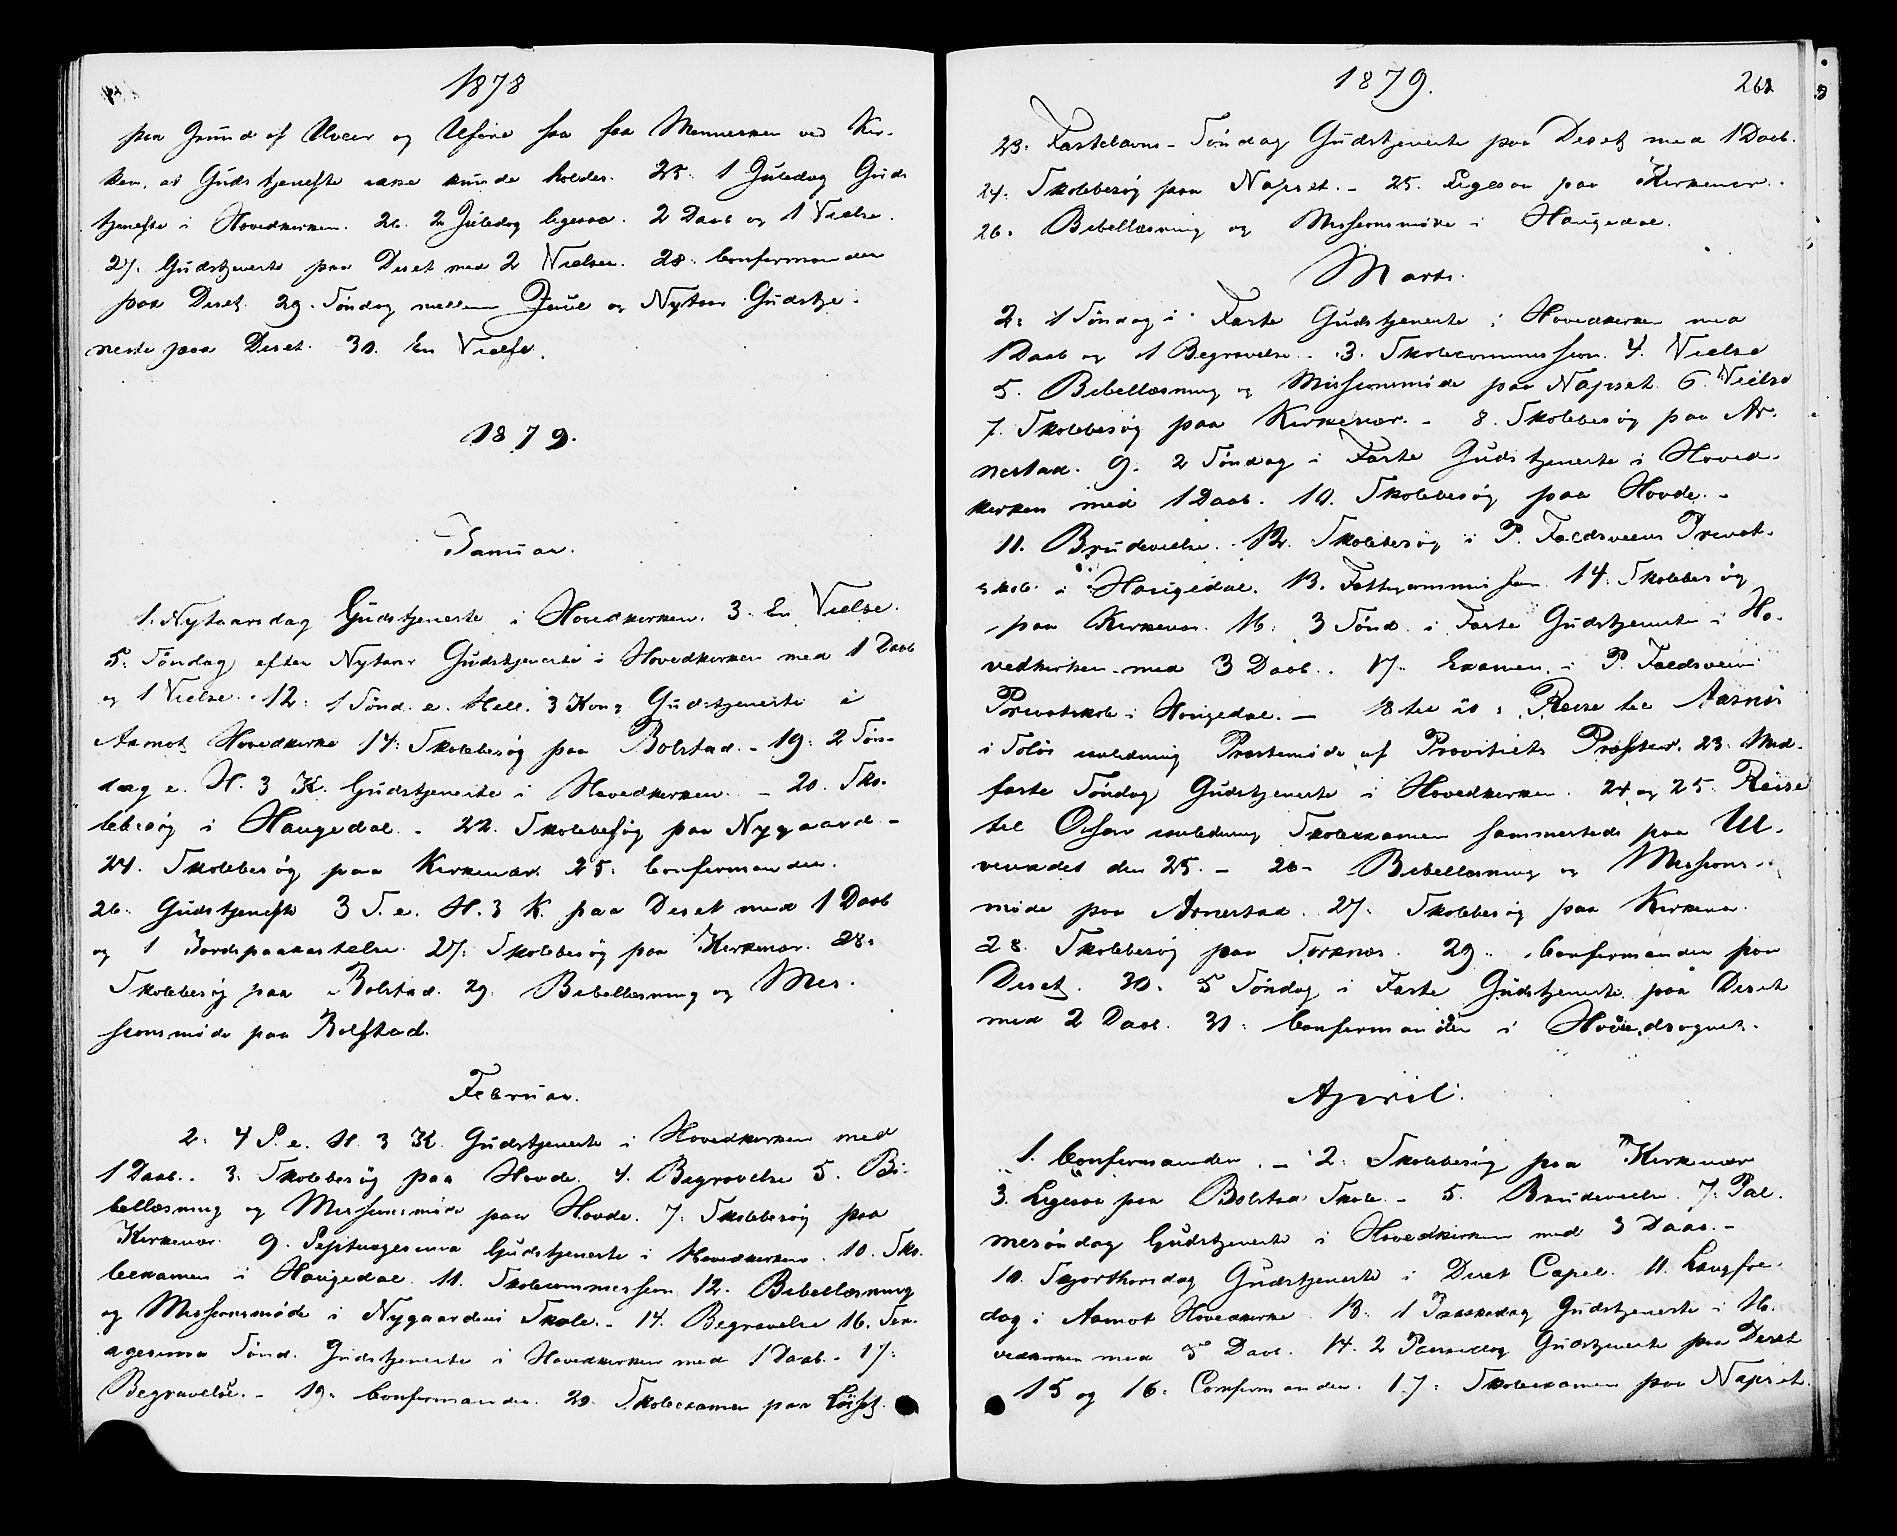 1878
paa Grund af Uveir og Uføre saa faa Mennesker ved Kir-
ken, at Gudstjeneste ikke kunde holdes. 25. 1 Juledag Guds
tjeneste i Hovedkirken. 26. 2 Juledag ligesaa. 2 Daab og 1 Vielse.
27. Gudstjeneste paa Deset med 2 Vielser. 28. Confirmander
paa Deset. 29. Søndag mellem Juul og Nytaar Gudstje-
neste paa Deset. 30. En Vielse.
1879.
Januar.
1. Nytaarsdag Gudstjeneste i Hovedkirken. 3. En Vielse.
5. Søndag efter Nytaar Gudstjeneste i Hovedkirken med 1 Daab
og 1 Vielse. 12. 1 Sønd. e. Hell. 3 Kong. Gudstjeneste i
Aamot Hovedkirke 14. Skolebesøg paa Bolstad. - 19. 2 Søn-
dag e. H. 3 K. Gudstjeneste i Hovedkirken. - 20. Sko-
lebesøg i Haugedal. - 22. Skolebesøg paa Nygaard -
24. Skolebesøg paa Kirkenær. 25. Confirmander.
26. Gudstjeneste 3 S. e. H. 3 K. paa Deset med 1 Daab
og 1 Jordspaakastelse. 27. Skolebesøg paa Kirkenær. 28.
Skolebesøg paa Bolstad. 29. Bibellæsning og Mis-
sionsmøde paa Bolstad.
Februar.
2. 4 S. e. H. 3 K. Gudstjeneste i Hovedkirken med
1 Daab. 3. Skolebesøg paa Hovde. 4. Begravelse 5. Bi-
bellæsning og Missionsmøde paa Hovde. 7. Skolebesøg paa
Kirkenær. 9. Septuagesima Gudstjeneste i Hovedkirken. 10. Sko-
leexamen i Haugedal. 11. Skolecommission 12. Bibellæsning
og Missionsmøde i Nygaardens Skole. - 14. Begravelse 16. Sex-
agesima Sønd. Gudstjeneste i Hovedkirken med 1 Daab. - 17.
Begravelse. - 19. Confirmander. 20. Skoleexamen paa Løset.
1879.
23. Fastelavns-Søndag Gudstjeneste paa Deset med 1 Daab.
24. Skolebesøg paa Napset. - 25. Ligesaa paa Kirkenær.
26. Bibellæsning og Missionsmøde i Haugedal.
Marts.
2. 1 Søndag i Faste Gudstjeneste i Hovedkirken med
1 Daab og 1 Begravelse. 3. Skolecommission. 4. Vielse
5. Bibellæsning og Missionsmøde paa Napset. 6. Vielse
7. Skolebesøg paa Kirkenær. - 8. Skolebesøg paa Ar-
nestad. 9. 2 Søndag i Faste Gudstjeneste i Hoved-
kirken med 1 Daab. 10. Skolebesøg paa Hovde. -
11. Brudevielse. 12. Skolebesøg i P. Faldsveens Privat-
skole i Haugedal. 13. Fattigcommission 14. Skolebesøg
paa Kirkenær. 16. 3 Sønd. i Faste Gudstjeneste i Ho-
vedkirken med 3 Daab. 17. Examen i P. Faldsveens
Privatskole i Haugedal. - 18 til 20. Reise til Aasnes
i Solør anledning Præstemøde af Provstiets Præster. 23. Mid-
faste Søndag Gudstjeneste i Hovedkirken. 24 og 25. Reise
til Osen anledning Skoleexamen sammesteds paa Ul-
vevadet den 25. - 26 - Bibellæsning og Missions-
møde paa Arnestad. 27. Skolebesøg paa Kirkenær.
28. Skolebesøg paa Torknes. 29. Confirmander paa
Deset. 30. 5 Søndag i Faste Gudstjeneste paa Deset
med 2 Daab. 31. Confirmander i Hovedsognet.
April.
1. Confirmander. - 2. Skolebesøg paa Kirkenær
3. Ligesaa paa Bolstad Skole. - 5. Brudevielse. 7. Pal-
mesøndag Gudstjeneste i Hovedkirken med 3 Daab. -
10. Skjærthorsdag Gudstjeneste i Deset Capel. 11. Langfre-
dag i Aamot Hovedkirke. 13. 1 Paaskedag Gudstjeneste i Ho-
vedkirken med 5 Daab. 14. 2 Paaskedag Gudstjeneste paa Deset
15 og 16. Confirmander. 17. Skoleexamen paa Napset.